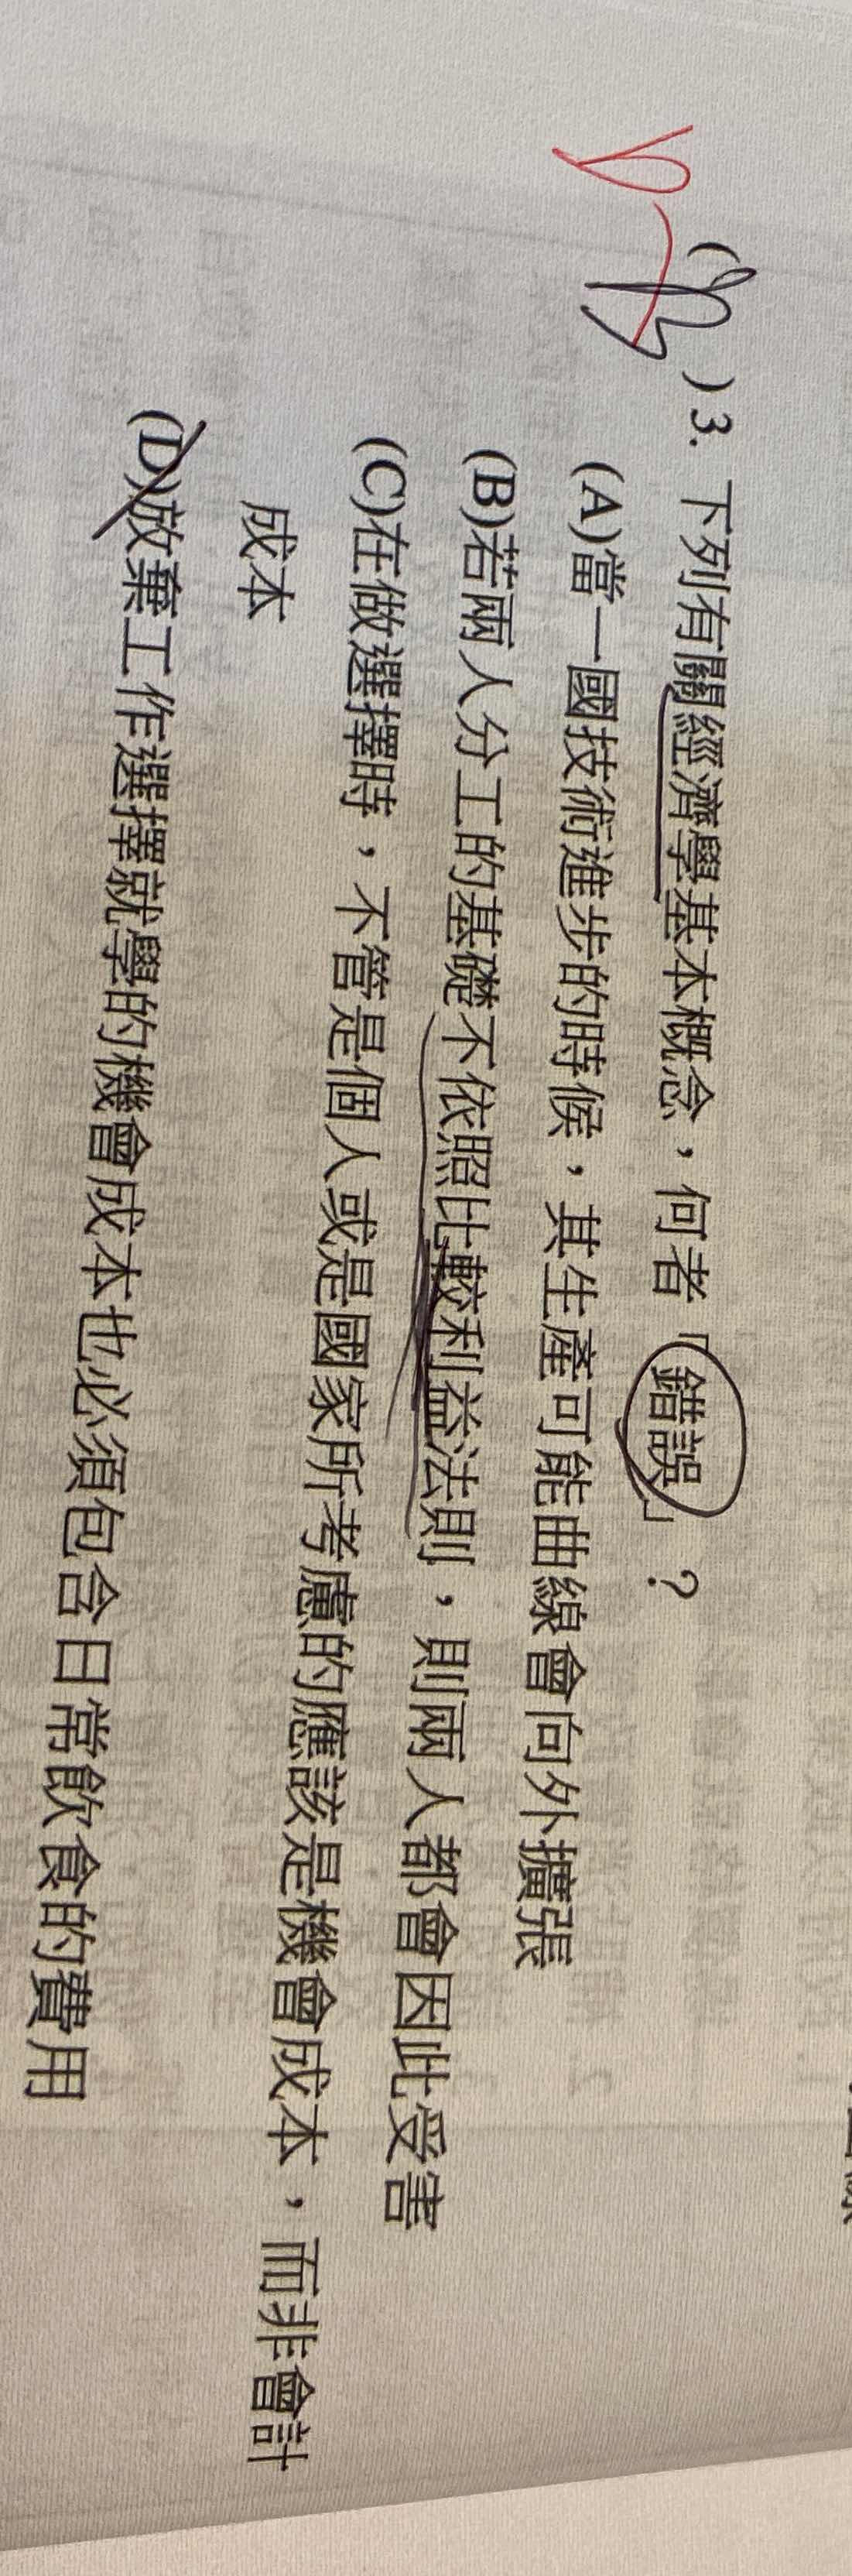 ( )3. 下列有關經濟學基本概念，何者「錯誤」？
(A)當一國技術進步的時候，其生產可能曲線會向外擴張
(B)若兩人分工的基礎不依照比較利益法則，則兩人都會因此受害
(C)在做選擇時，不管是個人或是國家所考慮的應該是機會成本，而非會計
成本
(D)放棄工作選擇就學的機會成本也必須包含日常飲食的費用